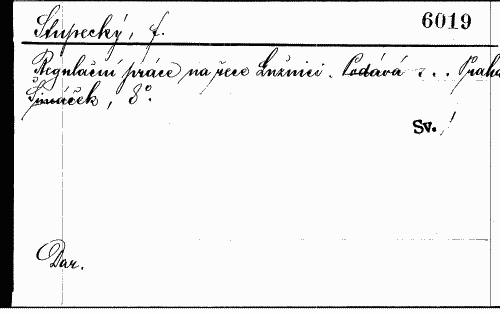 Stupecký, J.
6019
Regulační práce na řece Lužnici. Podává . . . Praha
Šimáček, 8°.
Sv. /
Dar.